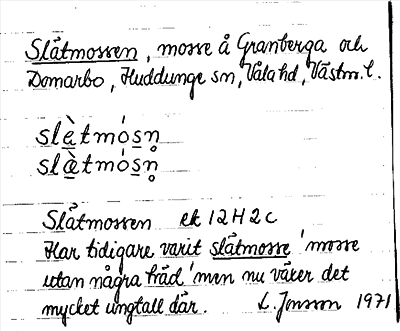 Slåtmossen, mosse å Granberga och
Domarbo, Huddunge sn, Våla hd, Västm. l.
slà̱tmós̱n̥
slæ̱̀tmós̱n̥
Slåtmossen ek 12H2c
Har tidigare varit slåtmosse 'mosse
utan några träd' men nu växer det
mycket ungtall där. L. Jonsson 1971